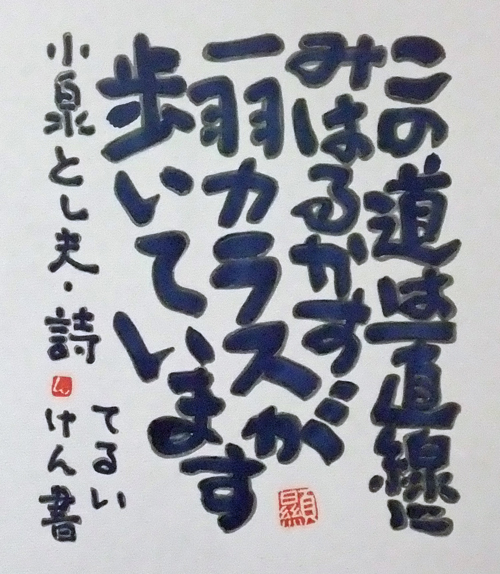 この道は一直線に
みはるかすが
一羽カラスが
歩いています
小泉とし夫・詩
ん
てるい
けん書
顯